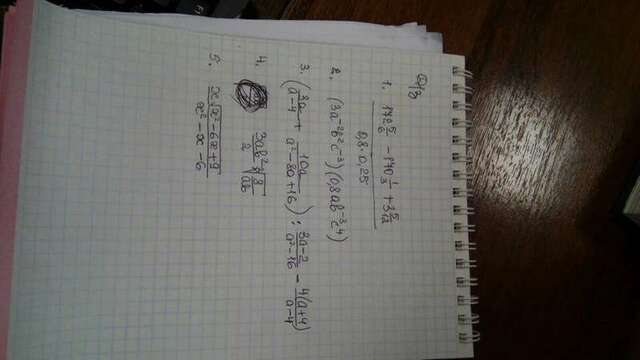 Д/З
1. (172 5/6 − 170 1/3 + 3 5/12) / (0,8 · 0,25)
2. (3a⁻²b²c⁻³)(0,8ab⁻³c⁴)
3. (3a/(a−4) + 10a/(a²−8a+16)) : (3a−2)/(a²−16) − 4(a+4)/(a−4)
4. 3ab²/2 √(8/ab)
5. x√(x²−6x+9) / (x²−x−6)